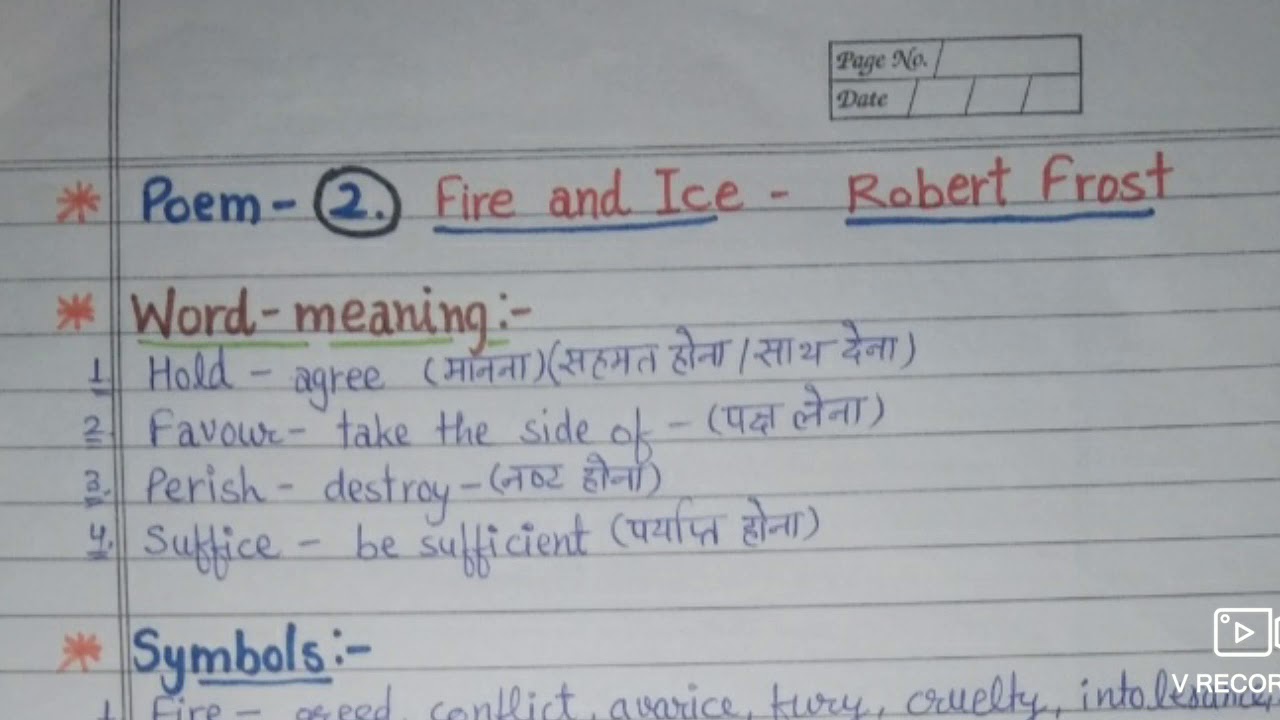 Page No.
Date
* Poem - 2. Fire and Ice - Robert Frost
* Word-meaning:-
1 Hold - agree (मानना)(सहमत होना/साथ देना)
2. Favour- take the side of - (पक्ष लेना)
3. Perish - destroy-(नष्ट होना)
4. Suffice - be sufficient (पर्याप्त होना)
* Symbols:-
1 Fire - greed, conflict, avarice, fury, cruelty, intolerance,
V RECOR